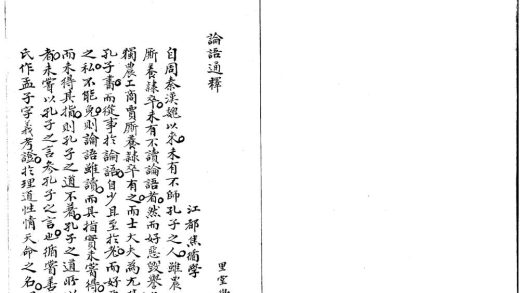 論語通釋 里堂
江都焦循學
自周秦漢魏以來未有不師孔子之人雖農
廝養隸卒未有不讀論語者然而好惡毀譽
獨農工商賈廝養隸卒有之而士大夫為尤
孔子書而從事於論語自少且至於老而好
之私不能免則論語雖讀而其指實未嘗得
而未得其指則孔子之道不著孔子之道所以
者未嘗以孔子之言參孔子之言也循嘗善
氏作孟子字義考證於理道性情天命之名